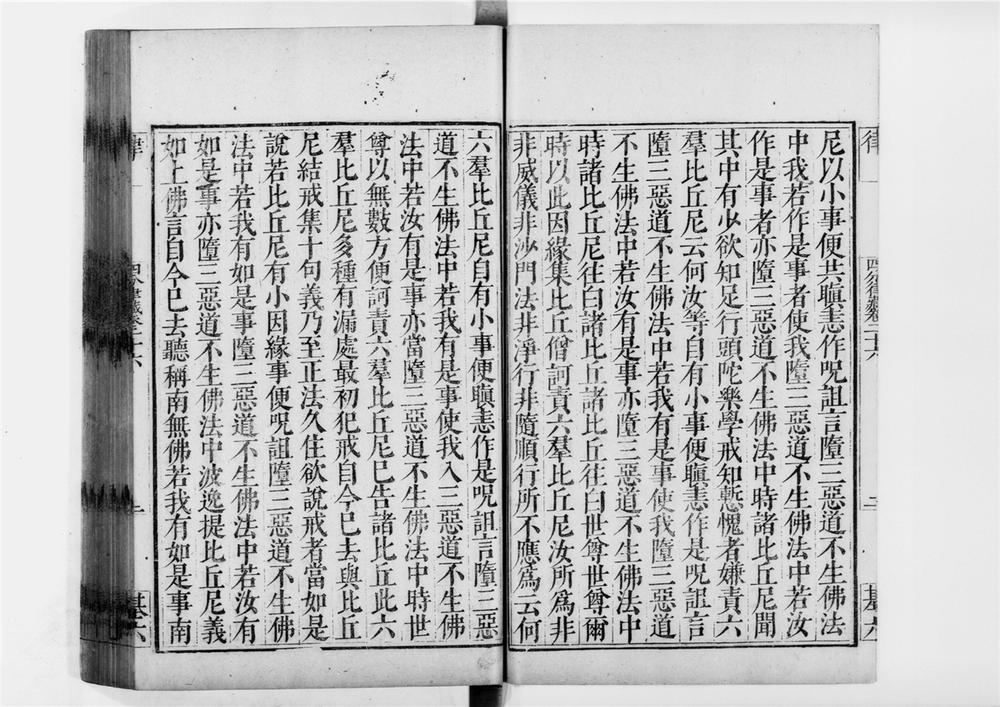 尼以小事便共瞋恚作呪詛言墮三惡道不生佛法
中我若作是事者使我墮三惡道不生佛法中若汝
作是事者亦墮三惡道不生佛法中時諸比丘尼聞
其中有少欲知足行頭陀樂學戒知慙愧者嫌責六
羣比丘尼云何汝等自有小事便瞋恚作是呪詛言
墮三惡道不生佛法中若我有是事使我墮三惡道
不生佛法中若汝有是事亦墮三惡道不生佛法中
時諸比丘尼往白諸比丘諸比丘往白世尊世尊爾
時以此因緣集比丘僧訶責六羣比丘尼汝所為非
非威儀非沙門法非淨行非隨順行所不應為云何
六羣比丘尼自有小事便瞋恚作是呪詛言墮三惡
道不生佛法中若我有是事使我入三惡道不生佛
法中若汝有是事亦當墮三惡道不生佛法中時世
尊以無數方便訶責六羣比丘尼已告諸比丘此六
羣比丘尼多種有漏處最初犯戒自今已去與比丘
尼結戒集十句義乃至正法久住欲說戒者當如是
說若比丘尼有小因緣事便呪詛墮三惡道不生佛
法中若我有如是事墮三惡道不生佛法中若汝有
如是事亦墮三惡道不生佛法中波逸提比丘尼義
如上佛言自今已去聽稱南無佛若我有如是事南
律
二